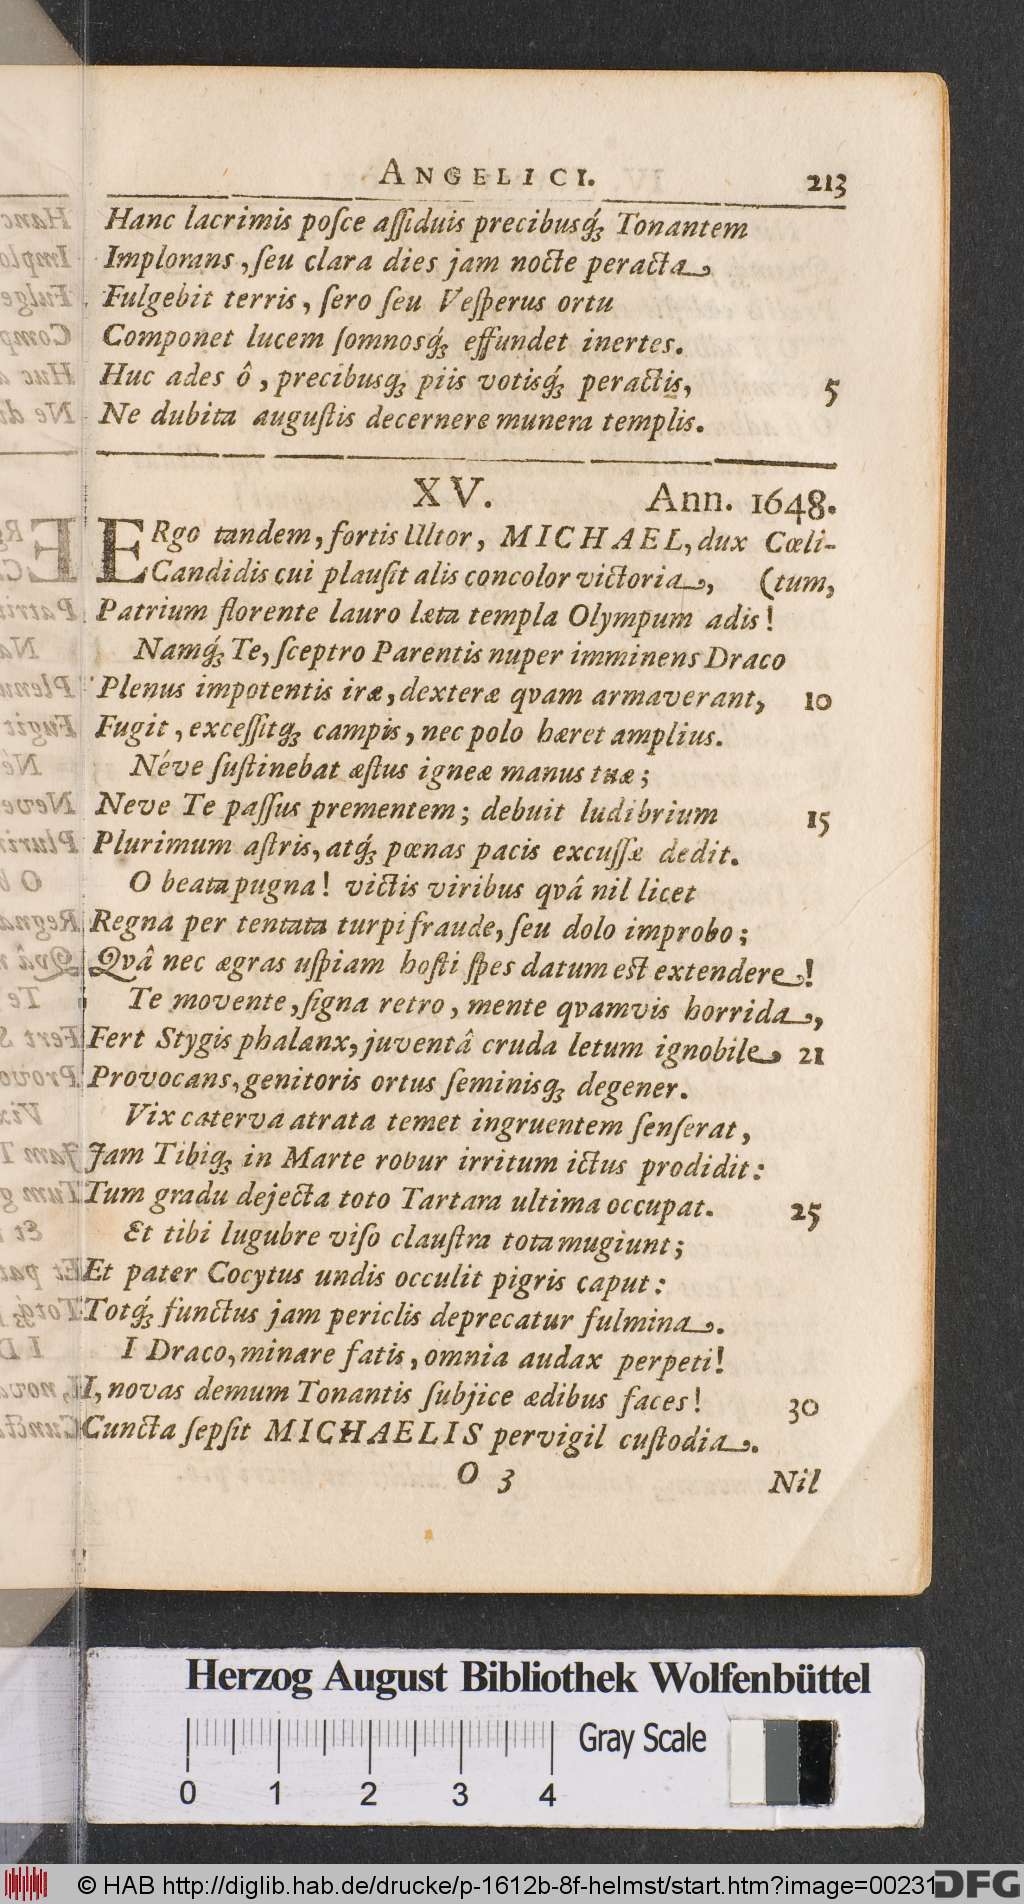 ANGELICI. 213
Hanc lacrimis poſce aſſiduis precibusq́; Tonantem
Implorans, ſeu clara dies jam nocte peracta
Fulgebit terris, ſero ſeu Veſperus ortu
Componet lucem ſomnosq́; effundet inertes.
Huc ades ô, precibusq; piis votisq́; peractis, 5
Ne dubita auguſtis decernere munera templis.
XV. Ann. 1648.
ERgo tandem, fortis Ultor, MICHAEL, dux Cœli-
Candidis cui plauſit alis concolor victoria, (tum,
Patrium florente lauro læta templa Olympum adis!
Namq́; Te, ſceptro Parentis nuper imminens Draco
Plenus impotentis iræ, dexteræ qvam armaverant, 10
Fugit, exceſſitq; campis, nec polo hæret amplius.
Néve ſuſtinebat æſtus igneæ manus tuæ;
Neve Te paſſus prementem; debuit ludibrium 15
Plurimum aſtris, atq́; pœnas pacis excuſſæ dedit.
O beata pugna! victis viribus qvâ nil licet
Regna per tentata turpi fraude, ſeu dolo improbo;
Qvâ nec ægras uſpiam hoſti ſpes datum est extendere!
Te movente, ſigna retro, mente qvamvis horrida,
Fert Stygis phalanx, juventâ cruda letum ignobile 21
Provocans, genitoris ortus ſeminisq; degener.
Vix caterva atrata temet ingruentem ſenſerat,
Jam Tibiq; in Marte robur irritum ictus prodidit:
Tum gradu dejecta toto Tartara ultima occupat. 25
Et tibi lugubre viſo clauſtra tota mugiunt;
Et pater Cocytus undis occulit pigris caput:
Totq́; functus jam periclis deprecatur fulmina.
I Draco, minare fatis, omnia audax perpeti!
I, novas demum Tonantis ſubjice ædibus faces! 30
Cuncta ſepſit MICHAELIS pervigil cuſtodia.
O 3 Nil
Herzog August Bibliothek Wolfenbüttel
Gray Scale
0 1 2 3 4
© HAB http://diglib.hab.de/drucke/p-1612b-8f-helmst/start.htm?image=00231
DFG